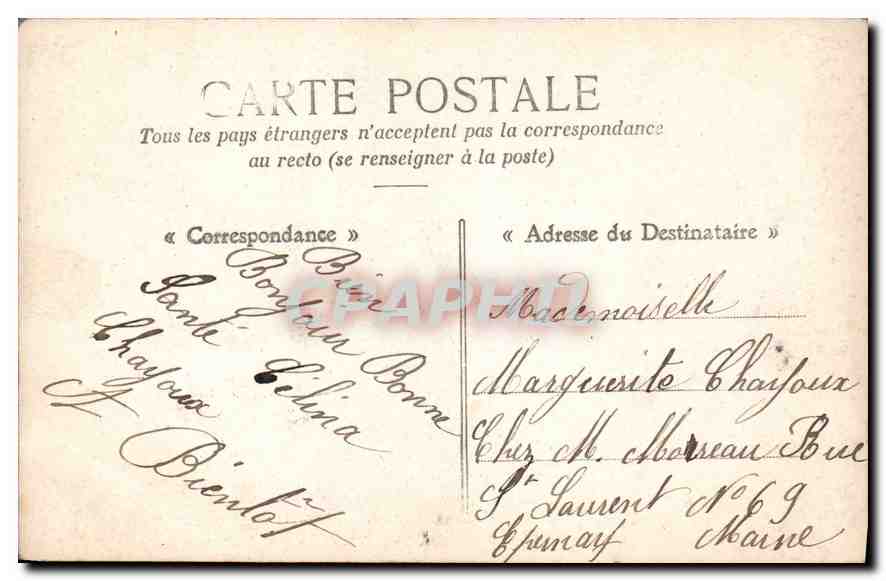 CARTE POSTALE
Tous les pays étrangers n'acceptent pas la correspondance
au recto (se renseigner à la poste)
« Correspondance »
Bien
Bonjour Bonne
Santé Célina
Chayoux
A Bientôt
« Adresse du Destinataire »
Mademoiselle
Marguerite Chayoux
Chez M. Moreau Rue
St Laurent No 69
Epernay Marne
CPAPHIL